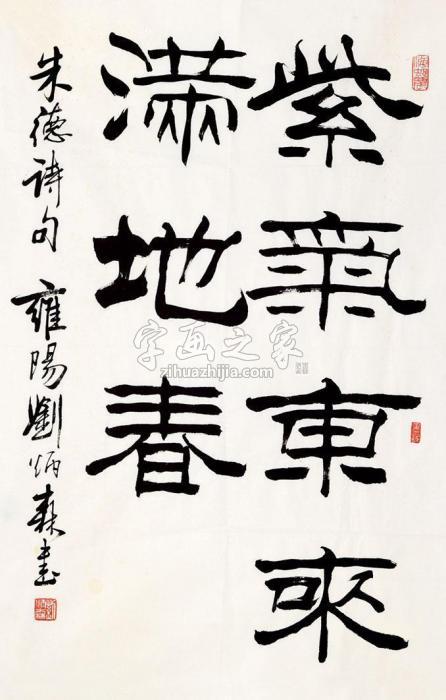 紫氣東來
滿地春
朱德詩句 雍陽劉炳森書
字画之家
zihuazhijia.com